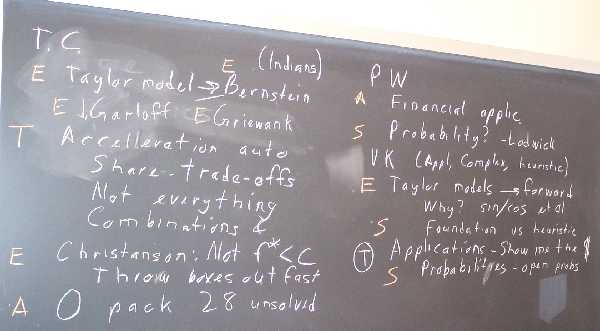 T.C
E (Indians)
E Taylor model → Bernstein
E J. Garloff E Griewank
T Accelleration auto
Share - trade-offs
Not everything
Combinations &
E Christanson: Not f* < C
Throw boxes out fast
A O pack 28 unsolved
PW
A Financial applic.
S Probability? - Lodwick
VK (Appl, Complex, heuristic)
E Taylor models → forward
Why? sin/cos et al
S Foundation vs heuristic
T Applications - Show me the $
S Probabilities - open probs